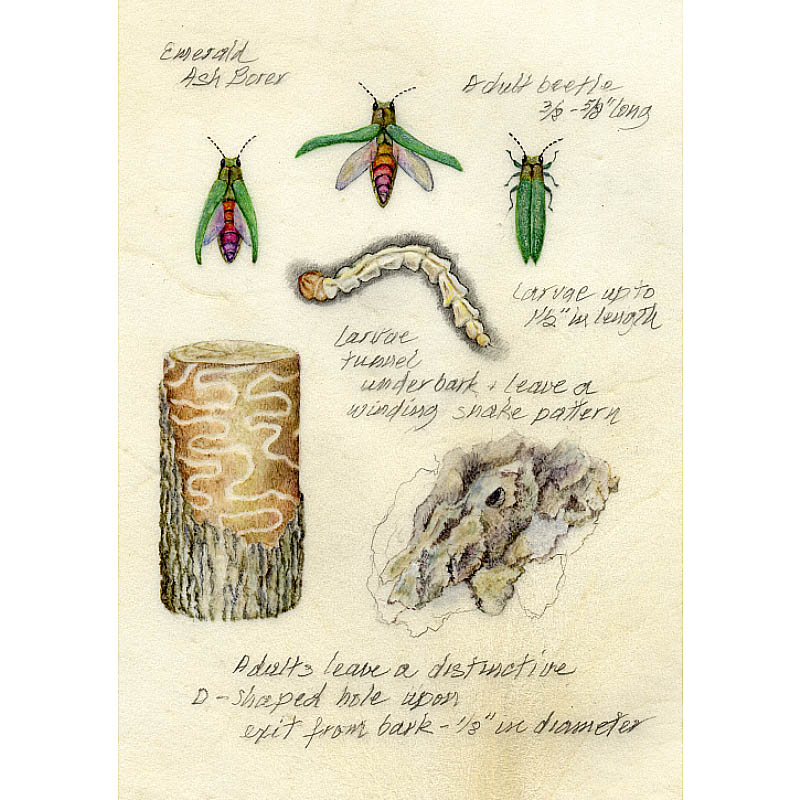 Emerald
Ash Borer
Adult beetle
3/8 - 5/8" long
Larvae up to
1 1/2" in length
Larvae
tunnel
under bark + leave a
winding snake pattern
Adults leave a distinctive
D-shaped hole upon
exit from bark - 1/8" in diameter